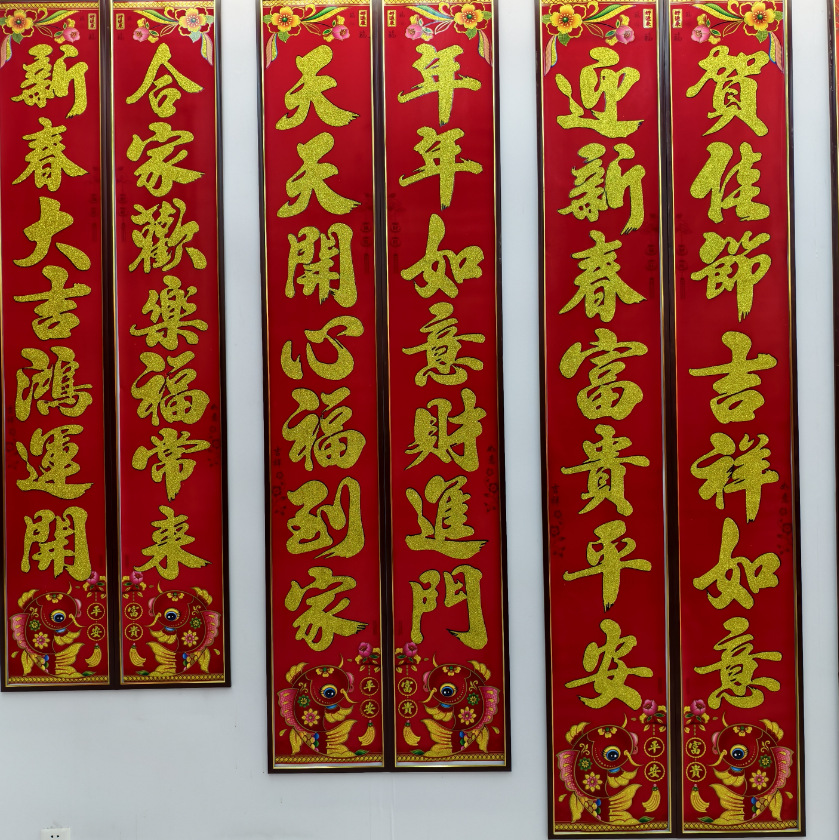 合家歡樂福常来
新春大吉鴻運開
年年如意財進門
天天開心福到家
賀佳節吉祥如意
迎新春富貴平安
富貴
平安
富貴
平安
富貴
平安